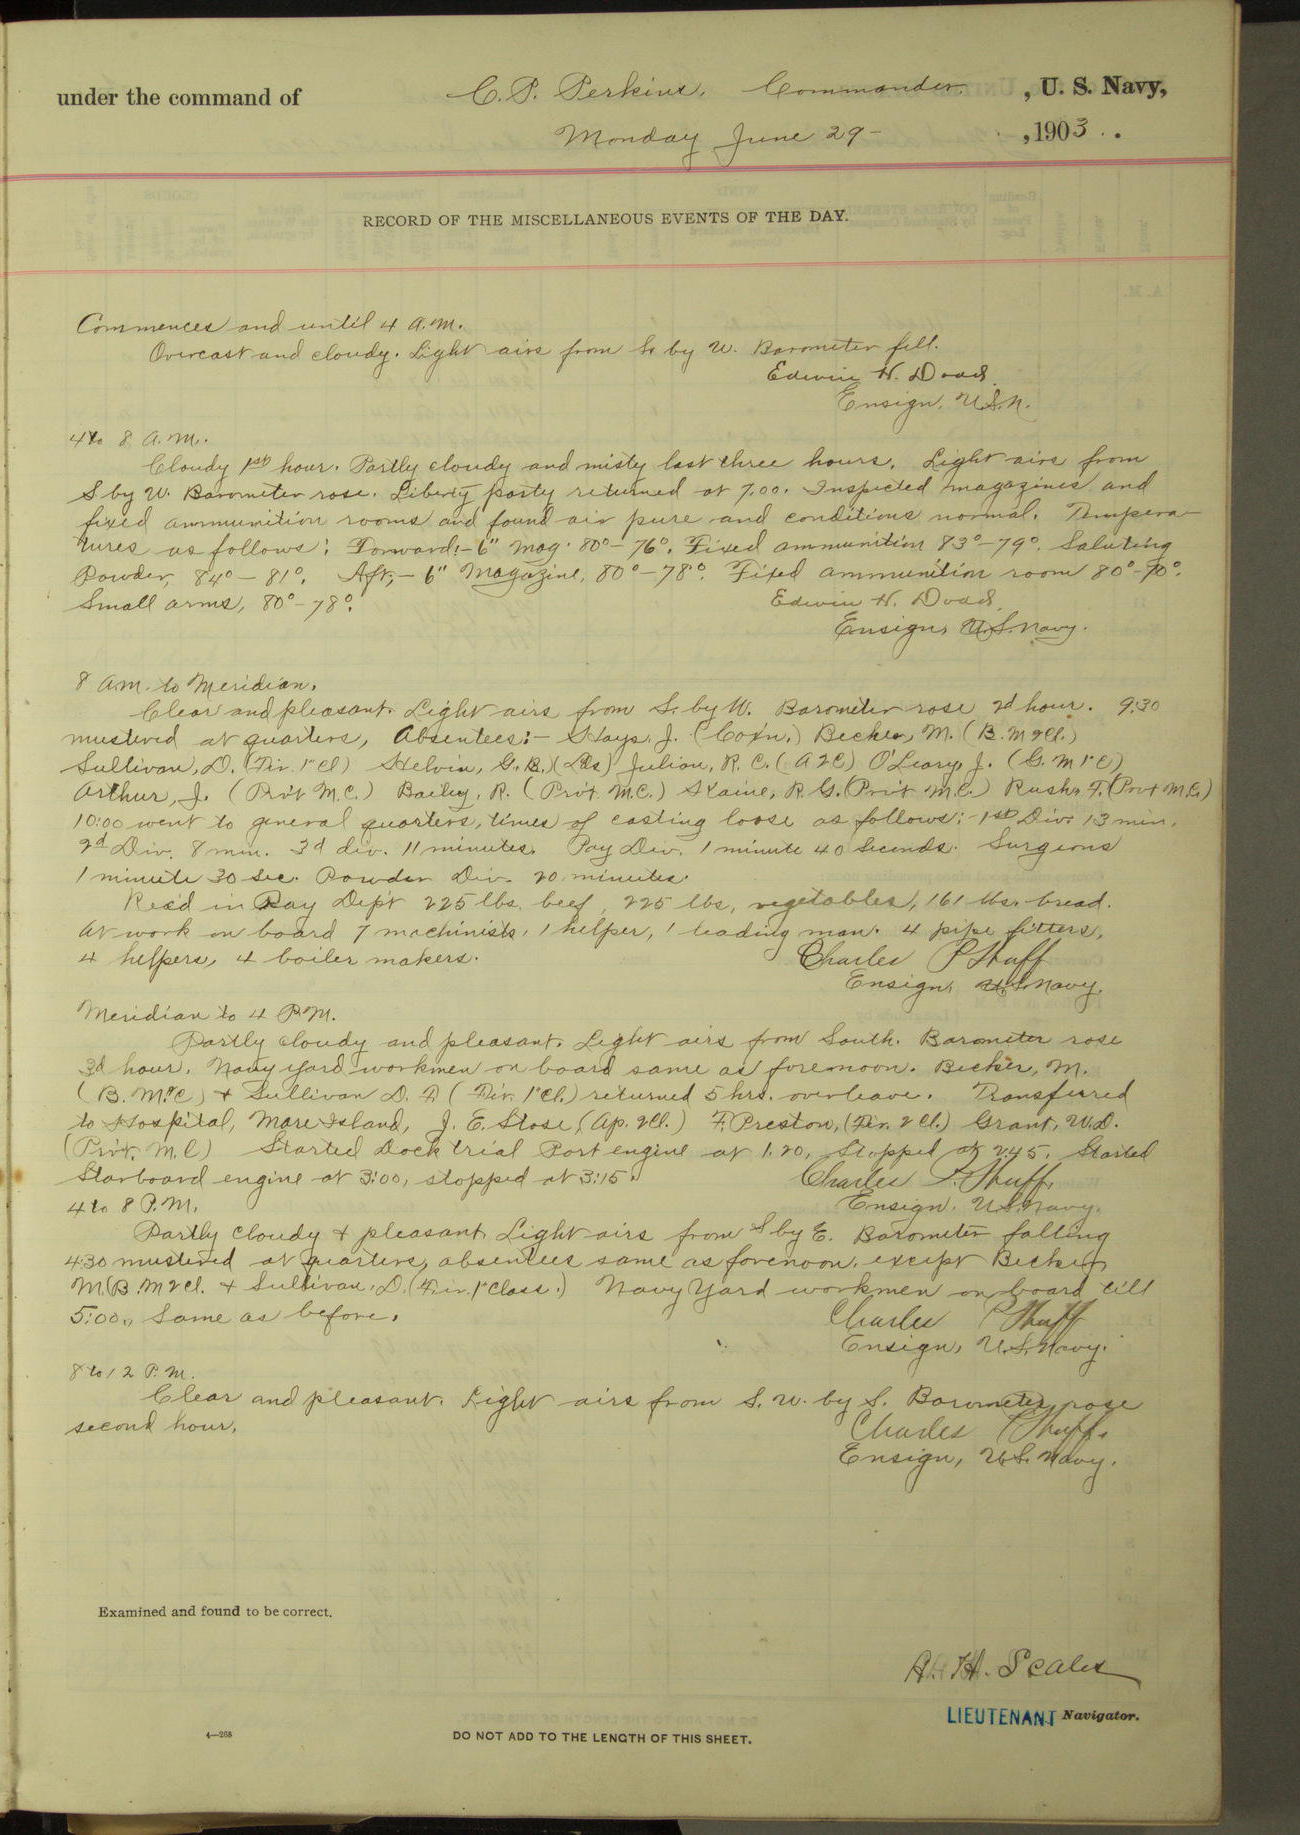 under the command of C. P. Perkins, Commander, U. S. Navy,
Monday June 29 - , 1903.
RECORD OF THE MISCELLANEOUS EVENTS OF THE DAY.
Commences and until 4 a.m.
Overcast and cloudy. Light airs from S. by W. Barometer fell.
Edwin H. Dodd
Ensign, U.S.N.
4 to 8 A.M.
Cloudy 1st hour. Partly cloudy and misty last three hours. Light airs from
S by W. Barometer rose. Liberty party returned at 7.00. Inspected magazines and
fixed ammunition rooms and found air pure and conditions normal. Tempera-
tures as follows: Forward:- 6" Mag. 80°-76°. Fixed ammunition 83°-79°. Saluting
Powder, 84°-81°. Aft,- 6" Magazine, 80°-78°. Fixed ammunition room 80°-70°.
Small arms, 80°-78°.
Edwin H. Dodd,
Ensign, U.S. Navy.
8 A.M. to Meridian.
Clear and pleasant. Light airs from S. by W. Barometer rose 2d hour. 9:30
mustered at quarters, Absentees:- Hays, J. (Cox'n.) Becker, M. (B. M 2 Cl.)
Sullivan, D. (Fir. 1st Cl) Helvin, G. B. Julian, R. C. (A 2 C) O'Leary, J. (G. M 1st C)
Arthur, J. (Priv't M.C.) Bailey, R. (Priv't M.C.) Kaine, R. G. (Priv't M.C.) Rush, F. (Priv't M.C.)
10:00 went to general quarters, times of casting loose as follows:- 1st Div. 13 min.
2d Div. 8 min. 3d div. 11 minutes. Pay Div. 1 minute 40 seconds. Surgeons
1 minute 30 sec. Powder Div. 20 minutes.
Rec'd in Pay Dep't 225 lbs. beef, 225 lbs, vegetables, 161 lbs. bread.
At work on board 7 machinists, 1 helper, 1 leading man. 4 pipe fitters,
4 helpers, 4 boiler makers.
Charles P. Huff
Ensign, U.S. Navy.
Meridian to 4 P.M.
Partly cloudy and pleasant. Light airs from South. Barometer rose
3d hour. Navy yard workmen on board same as forenoon. Becker, M.
(B. M. 2 C) + Sullivan D. (Fir. 1st Cl.) returned 5 hrs. overleave. Transferred
to Hospital, Mare Island, J. E. Stose, (Ap. 2 Cl.) F. Preston, (Fir. 2 Cl.) Grant, W. D.
(Priv't. M. C) Started Dock trial Port engine at 1.20, Stopped at 2.45. Started
Starboard engine at 3:00, stopped at 3:15.
Charles P. Huff,
Ensign, U.S. Navy.
4 to 8 P.M.
Partly cloudy + pleasant. Light airs from S by E. Barometer falling
4:30 mustered at quarters, absentees same as forenoon, except Becker,
M. (B. M 2 Cl. + Sullivan, D. (Fir. 1st Class.) Navy Yard workmen on board till
5:00, Same as before.
Charles P. Huff
Ensign, U.S. Navy.
8 to 12 P.M.
Clear and pleasant. Light airs from S. W. by S. Barometer rose
second hour.
Charles P. Huff,
Ensign, U.S. Navy.
Examined and found to be correct.
A. H. Scales
LIEUTENANT Navigator.
4—268
DO NOT ADD TO THE LENGTH OF THIS SHEET.